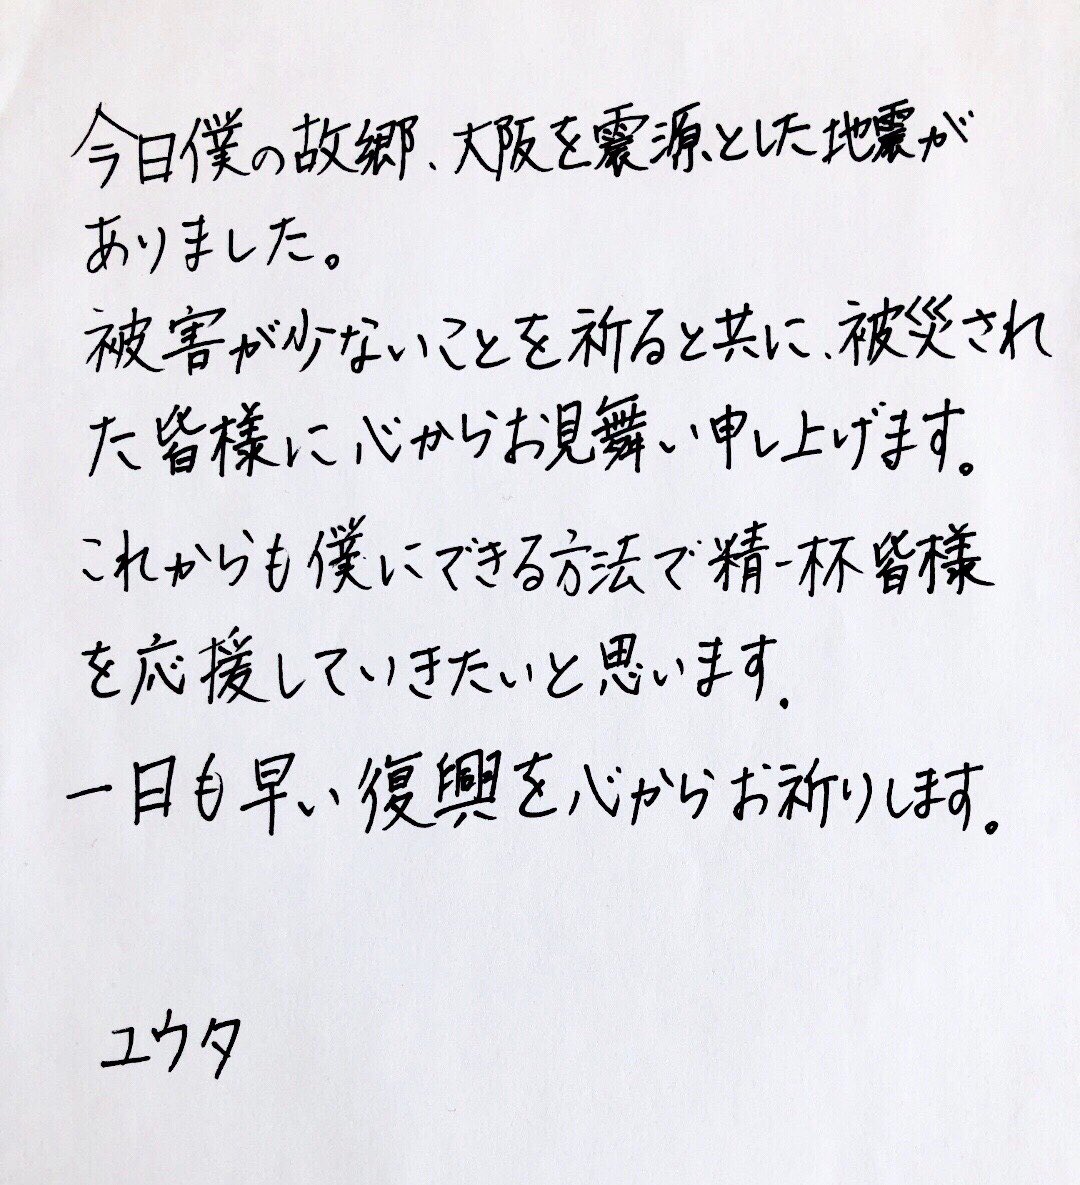 今日僕の故郷、大阪を震源とした地震が
ありました。
被害が少ないことを祈ると共に、被災され
た皆様に心からお見舞い申し上げます。
これからも僕にできる方法で精一杯皆様
を応援していきたいと思います.
一日も早い復興を心からお祈りします。
ユウタ